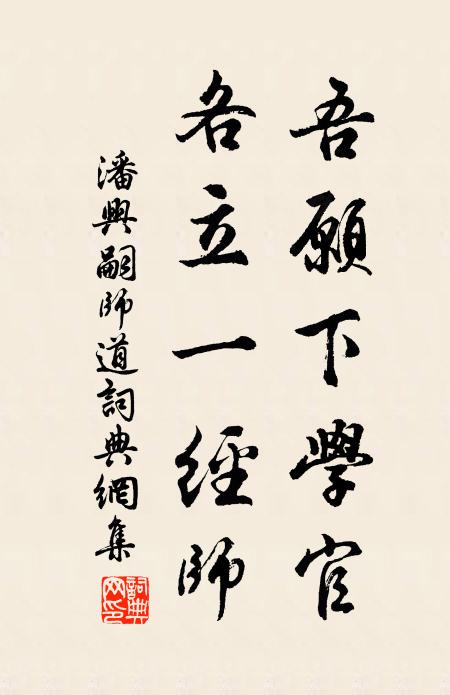 吾願下學官
各立一經師
潘興嗣師道詞典網集
詞典網印